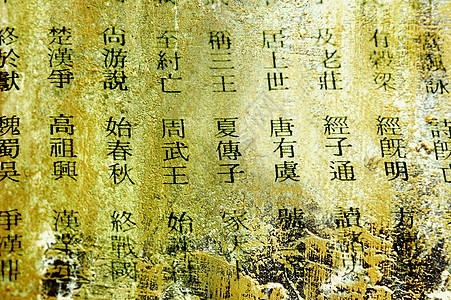 諷詠 詩旣亡
有穀梁 經旣明 方
及老莊 經子通 讀
居上世 唐有虞 號二
稱三王 夏傳子 家天
至紂亡 周武王 始誅
尚游說 始春秋 終戰國
楚漢爭 高祖興 漢業
終於獻 魏蜀吳 爭漢鼎